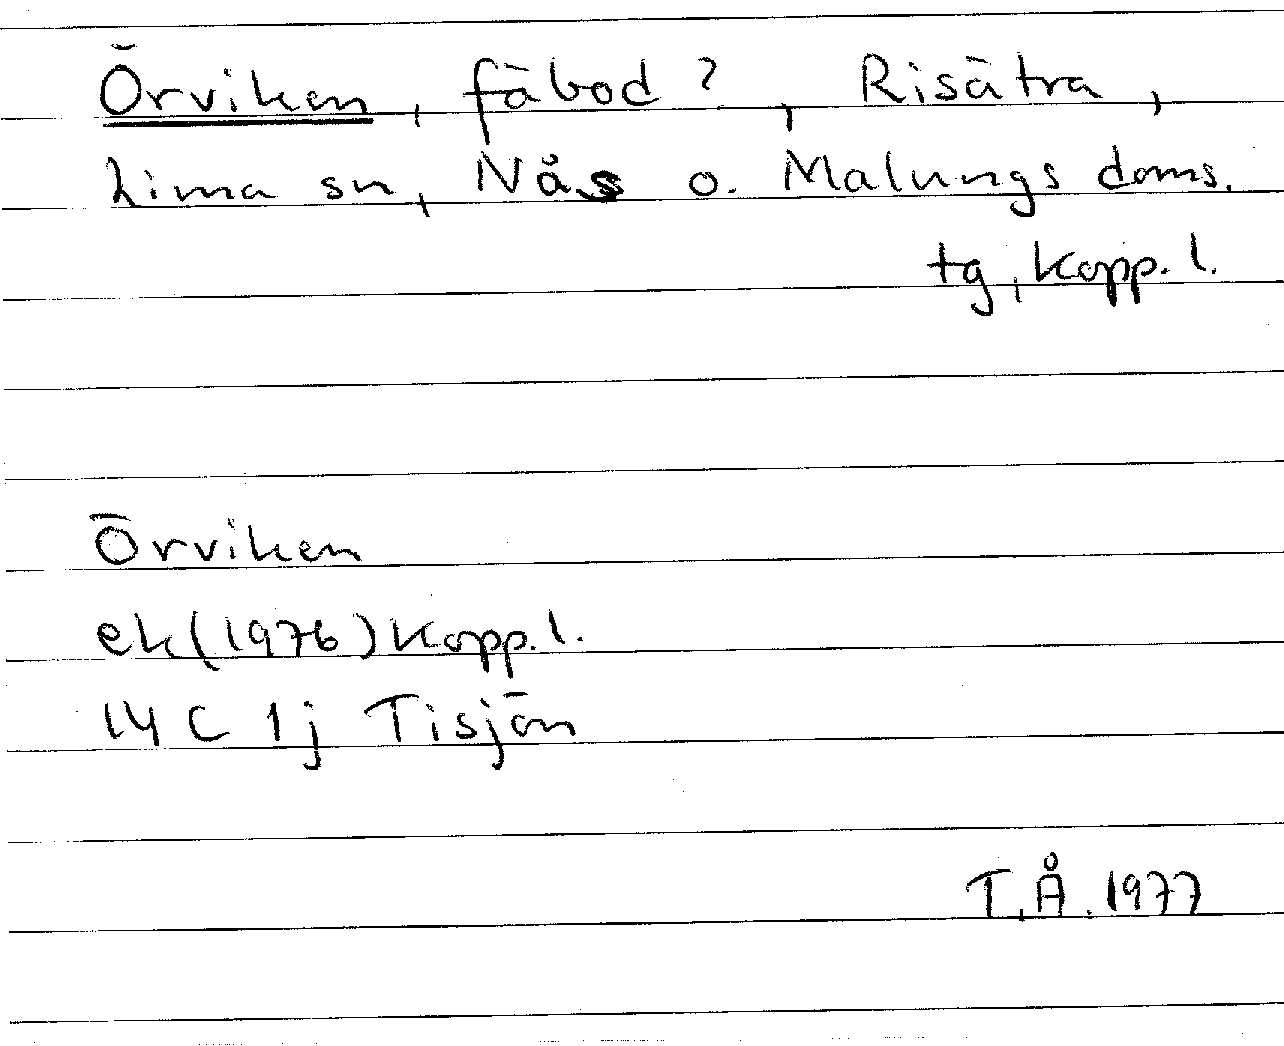 Örviken, fäbod?, Risätra,
Lima sn, Nås o. Malungs doms.
tg, Kopp. l.
Örviken
ek (1976) Kopp. l.
14 C 1j Tisjön
T.Å. 1977